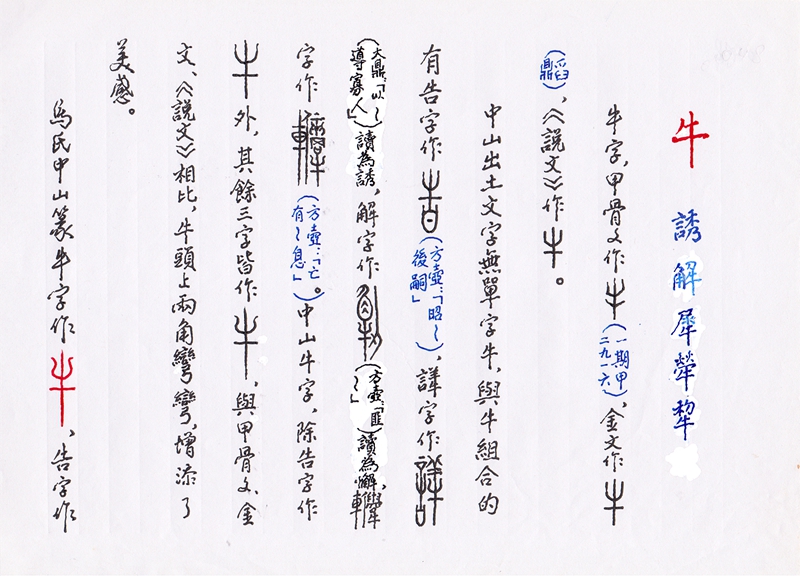 牛 誘解犀犖犂
牛字，甲骨文作牛（一期甲二九一六），金文作牛
（鼎），《說文》作牛。
中山出土文字無單字牛，與牛組合的
有告字作告（方壺：「昭〜後嗣」），詳字作
（大鼎：「以〜導寡人」）讀為誘，解字作（方壺：「匪〜」）讀為解，
字作（方壺：「亡有〜息」）。中山牛字，除告字作
牛外，其餘三字皆作牛，與甲骨文、金
文、《說文》相比，牛頭上兩角彎彎，增添了
美感。
馬氏中山篆牛字作牛，告字作